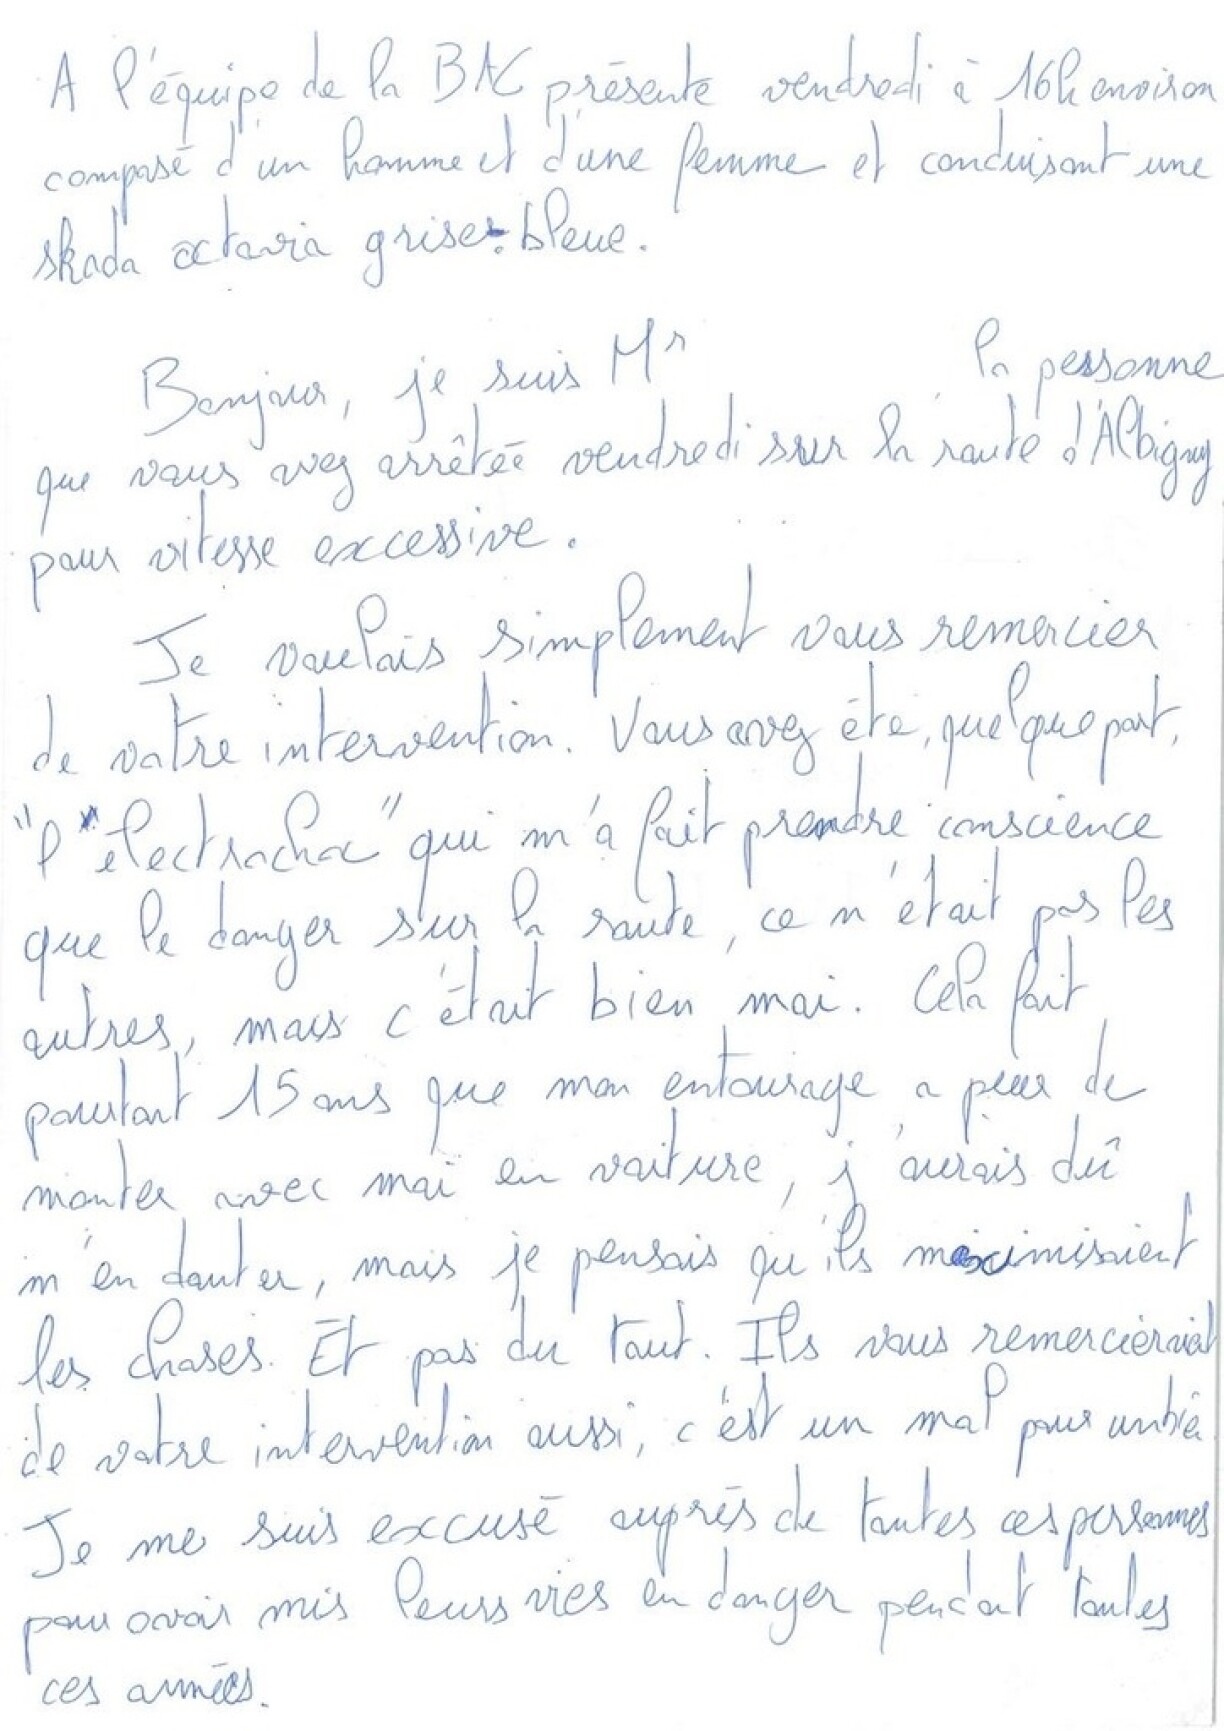 A l'équipe de la BAC présente vendredi à 16h environ
composé d'un homme et d'une femme et conduisant une
skoda octavia grise-bleue.
Bonjour, je suis Mr la personne
que vous avez arrêtée vendredi sur la route d'Albigny
pour vitesse excessive.
Je voulais simplement vous remercier
de votre intervention. Vous avez été, quelque part,
"l'électrochoc" qui m'a fait prendre conscience
que le danger sur la route, ce n'était pas les
autres, mais c'était bien moi. Cela fait
pourtant 15 ans que mon entourage a peur de
monter avec moi en voiture, j'aurais dû
m'en douter, mais je pensais qu'ils maximisaient
les choses. Et pas du tout. Ils vous remercieraient
de votre intervention aussi, c'est un mal pour un bien
Je me suis excusé auprès de toutes ces personnes
pour avoir mis leurs vies en danger pendant toutes
ces années.